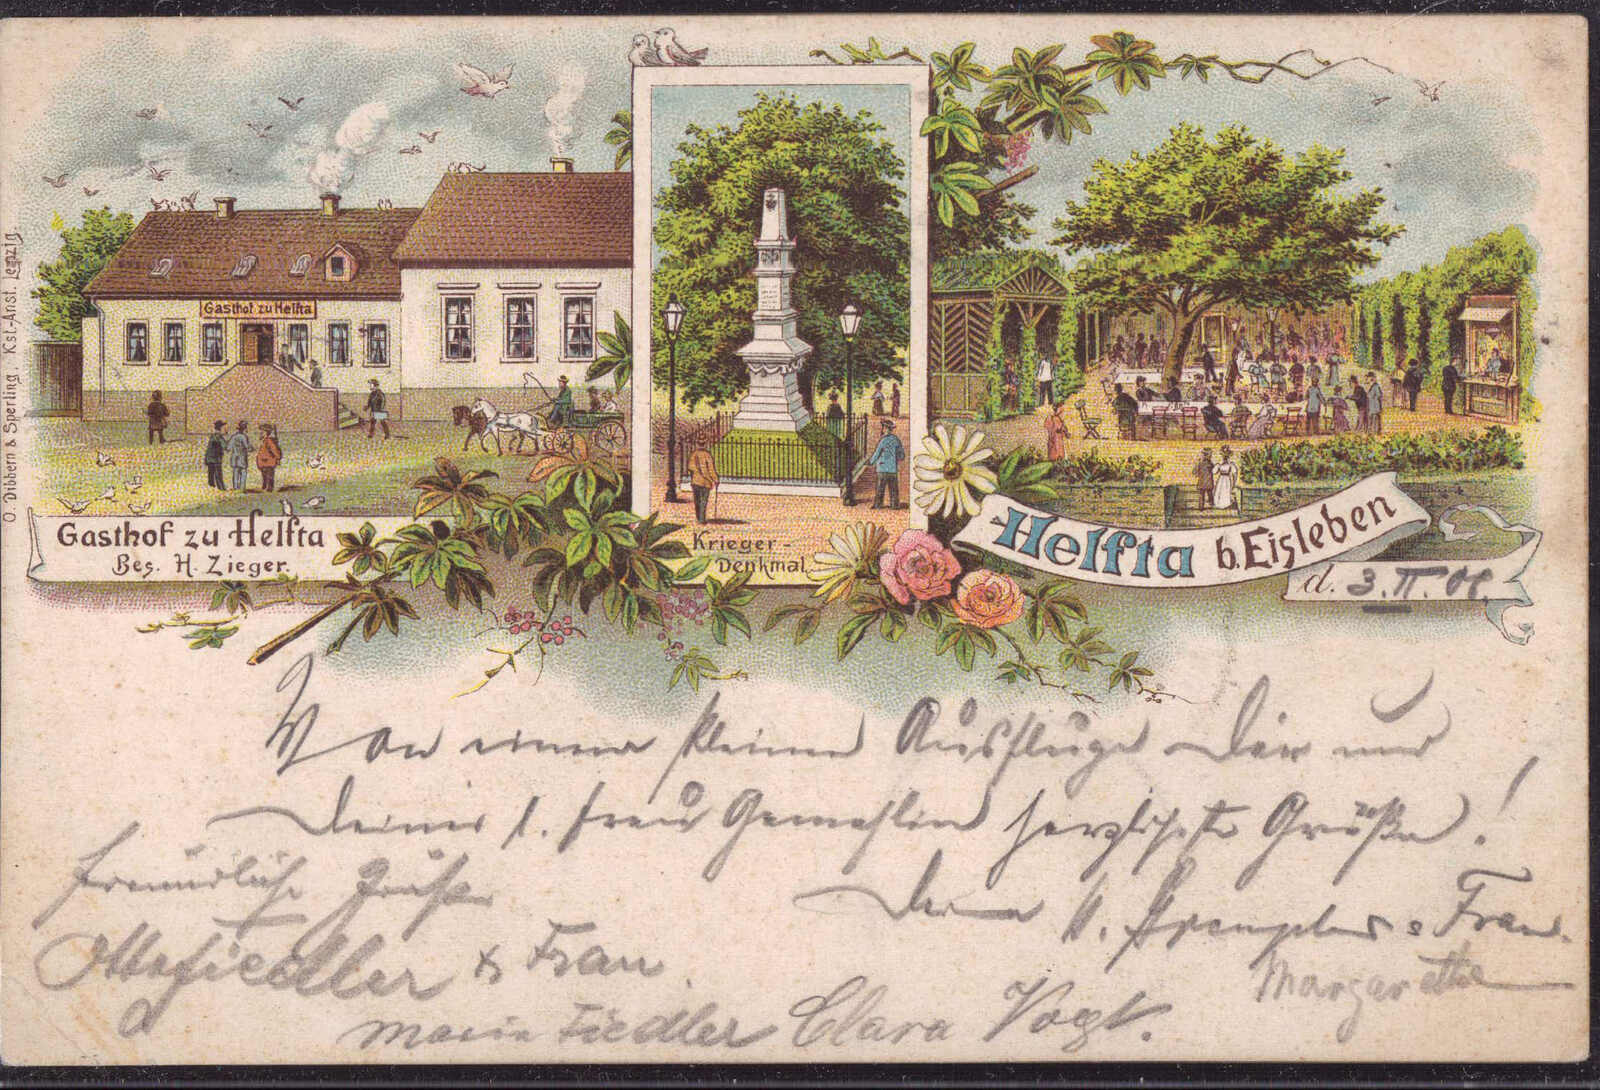 O. Dibbern & Sperling, Kst.-Anst. Leipzig.
Gasthof zu Helfta
Gasthof zu Helfta
Bes. H. Zieger.
Krieger-
Denkmal
Helfta b. Eisleben
d. 3. II. 01.
Von einem kleinen Ausfluge Dir und
Deiner l. Frau Gemahlin herzlichste Grüße!
freundliche Grüße
Dein u. Frau
Otto Fiedler & Frau
Margarethe
Marie Fiedler Clara Vogt.